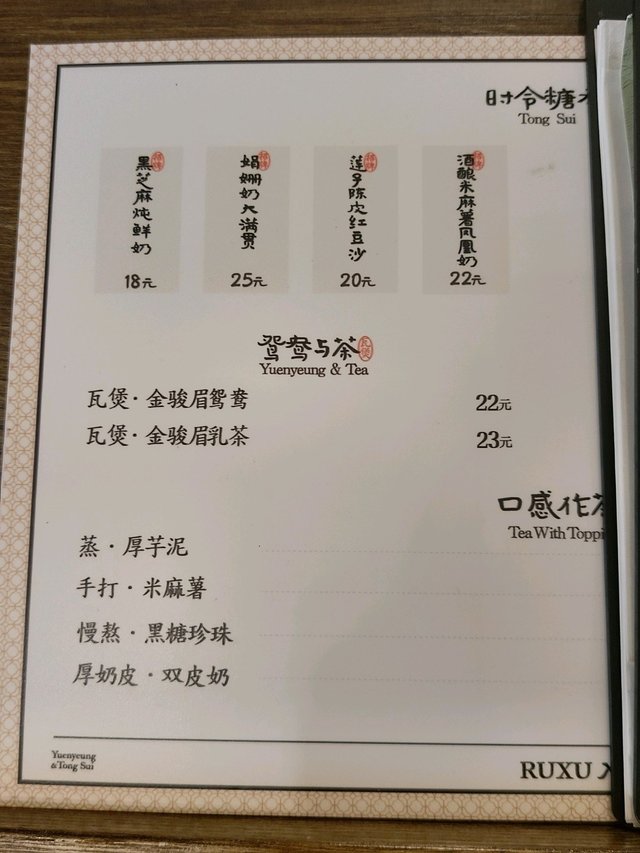 时令糖
Tong Sui
黑芝麻炖鲜奶
18元
娟姗奶大满贯
25元
莲子陈皮红豆沙
20元
酒酿米麻薯凤凰奶
22元
鸳鸯与茶 瓦煲
Yuenyeung & Tea
瓦煲·金骏眉鸳鸯 22元
瓦煲·金骏眉乳茶 23元
口感作茶
Tea With Toppi
蒸·厚芋泥
手打·米麻薯
慢熬·黑糖珍珠
厚奶皮·双皮奶
Yuenyeung
&Tong Sui
RUXU